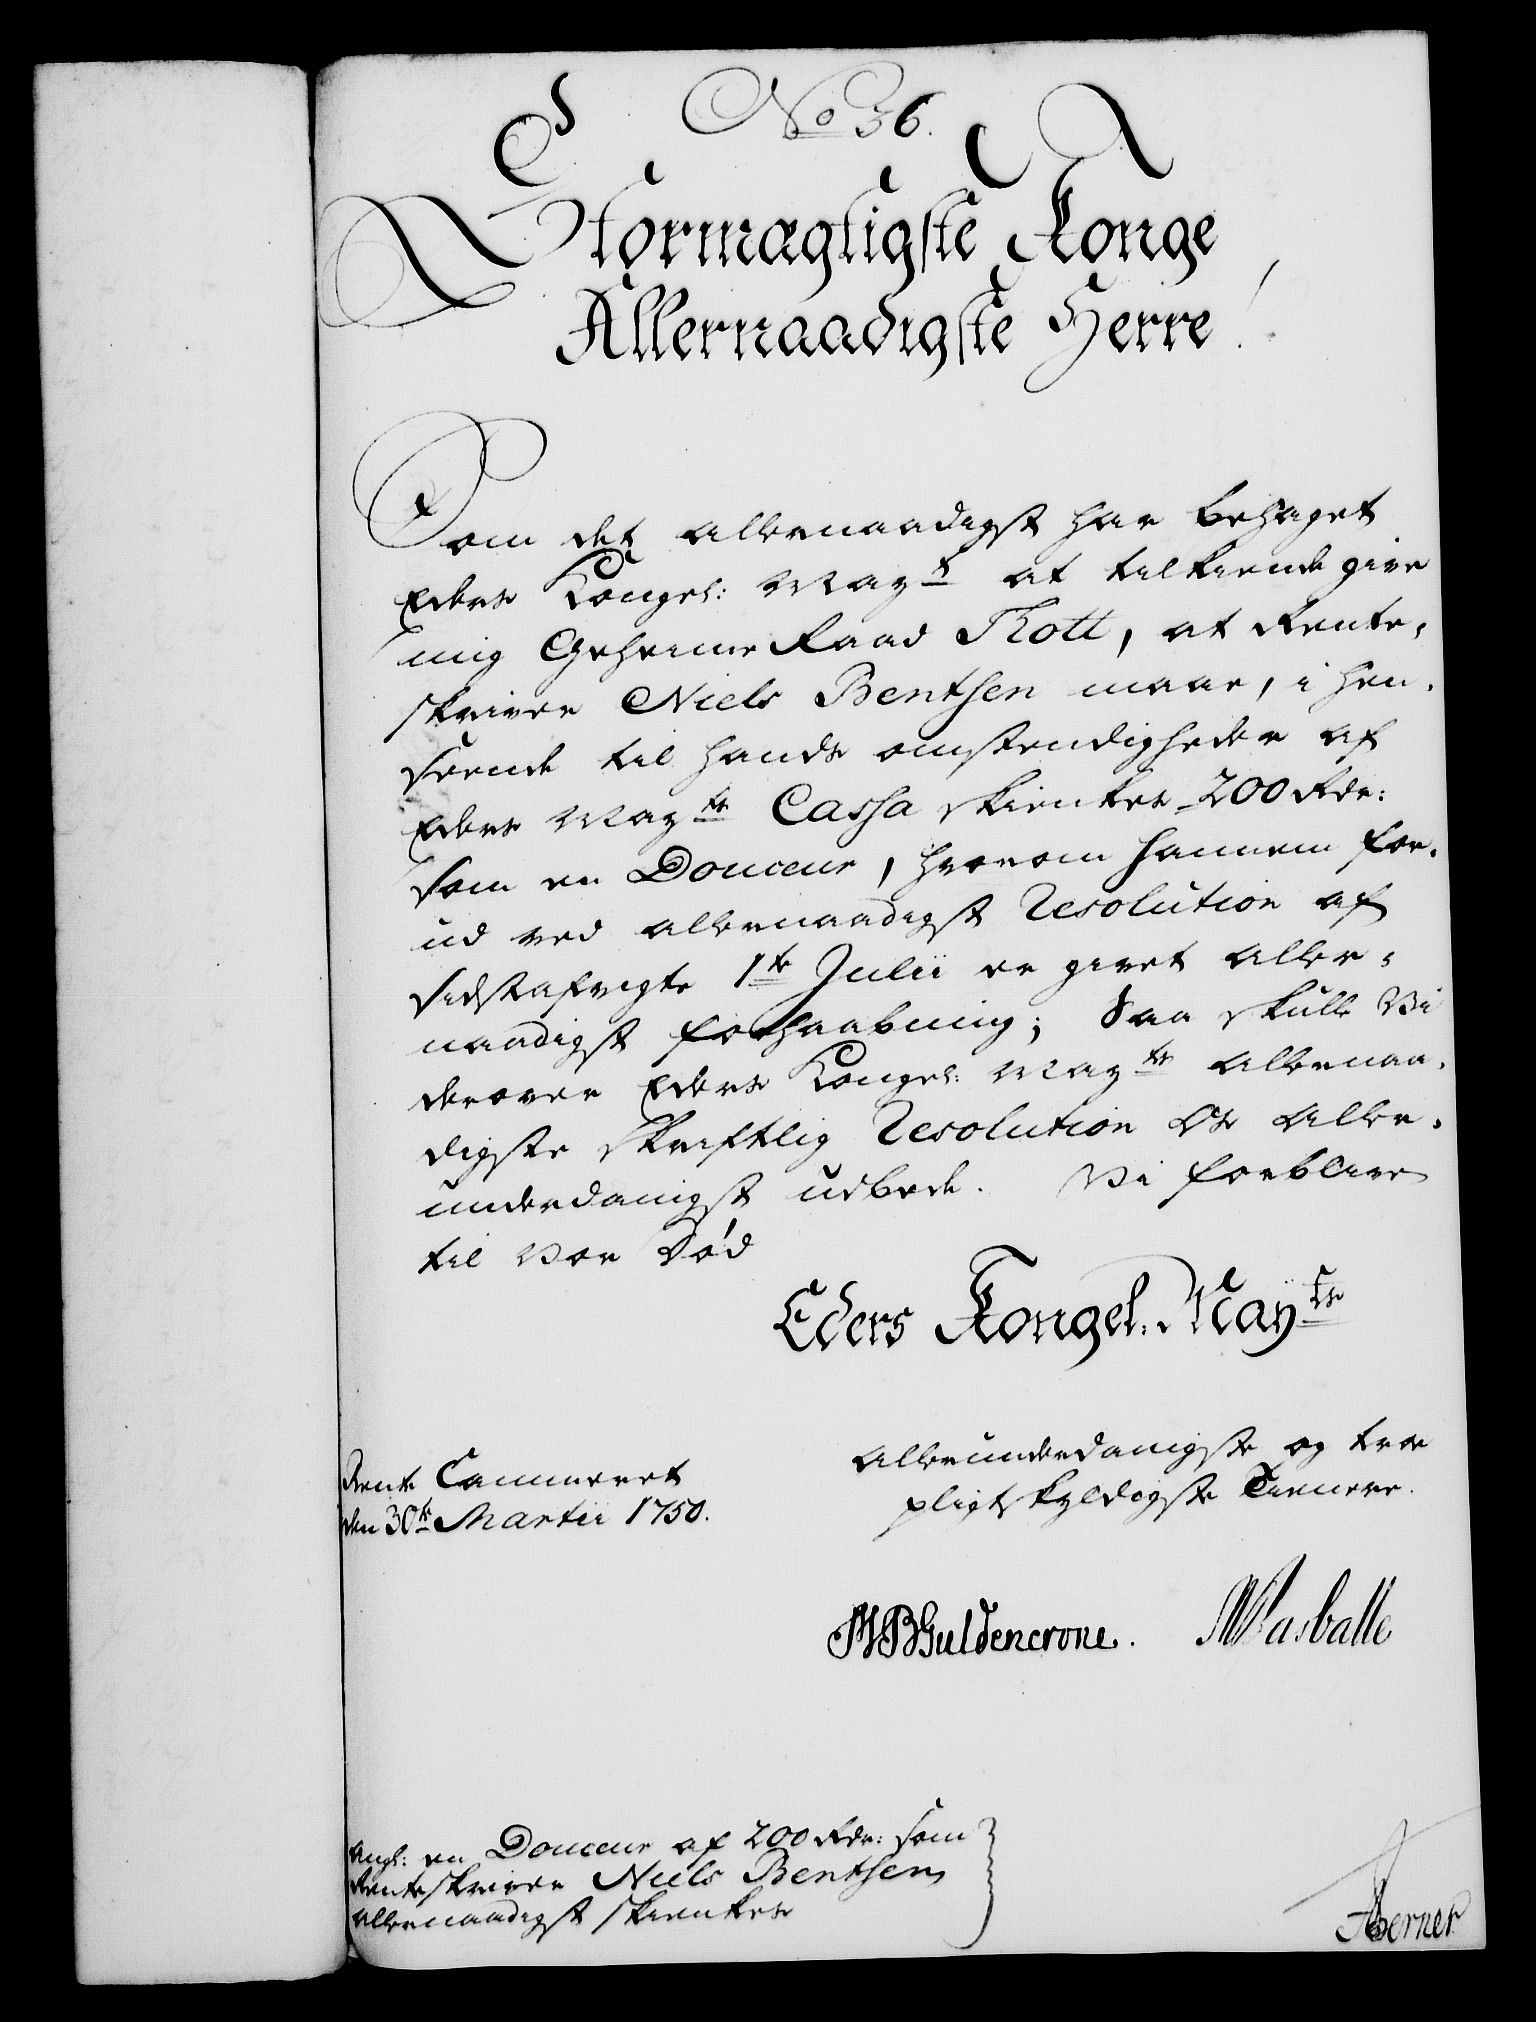 No 36.
Stormægtigste Konge
Allernaadigste Herre!
Som det allernaadigst har behaget
Eders Kongel: Mayt at tilkiende give
mig Geheime Raad Thott, at Rente-
skriver Niels Bentsen maae, i hen-
seende til hands omstendigheder af
Eders Mayts Cassa skienkes 200 Rdr:
som en Douceur, hvorom hannem for-
ud ved allernaadigst Resolution af
sidstafvigte 1te Julii er givet aller-
naadigst forhaabning; Saa skulle Vi
derover Eders Kongel: Mayts allernaa-
digste skriftlig Resolution os aller-
underdanigst udbede. Vi forblive
til vor Død
Eders Kongel. Mayts
allerunderdanigste og troe
pligtskyldigste Tienere.
Rente Cammeret
den 30te Martii 1750.
MBGuldencrone. Wasballe
angl: en Douceur af 200 Rdr: som
Renteskriver Niels Bentsen
allernaadigst skienkes
Berner